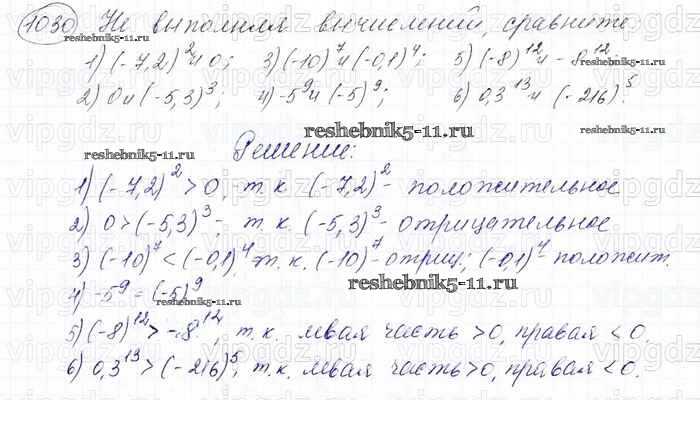 1030 Не выполняя вычислений, сравните:
reshebnik5-11.ru
1) (-7,2)² и 0; 3) (-10)⁷ и (-0,1)⁴; 5) (-8)¹² и -8¹²;
2) 0 и (-5,3)³; 4) -5⁹ и (-5)⁹; 6) 0,3¹³ и (-216)⁵.
reshebnik5-11.ru
reshebnik5-11.ru
reshebnik5-11.ru
Решение:
1) (-7,2)² > 0, т.к. (-7,2)² - положительное
2) 0 > (-5,3)³, т.к. (-5,3)³ - отрицательное
3) (-10)⁷ < (-0,1)⁴ т.к. (-10)⁷ - отриц; (-0,1)⁴ - положит.
reshebnik5-11.ru
4) -5⁹ = (-5)⁹
5) (-8)¹² > -8¹², т.к. левая часть > 0, правая < 0.
6) 0,3¹³ > (-216)⁵, т.к. левая часть > 0, правая < 0.
reshebnik5-11.ru
vipgdz.ru